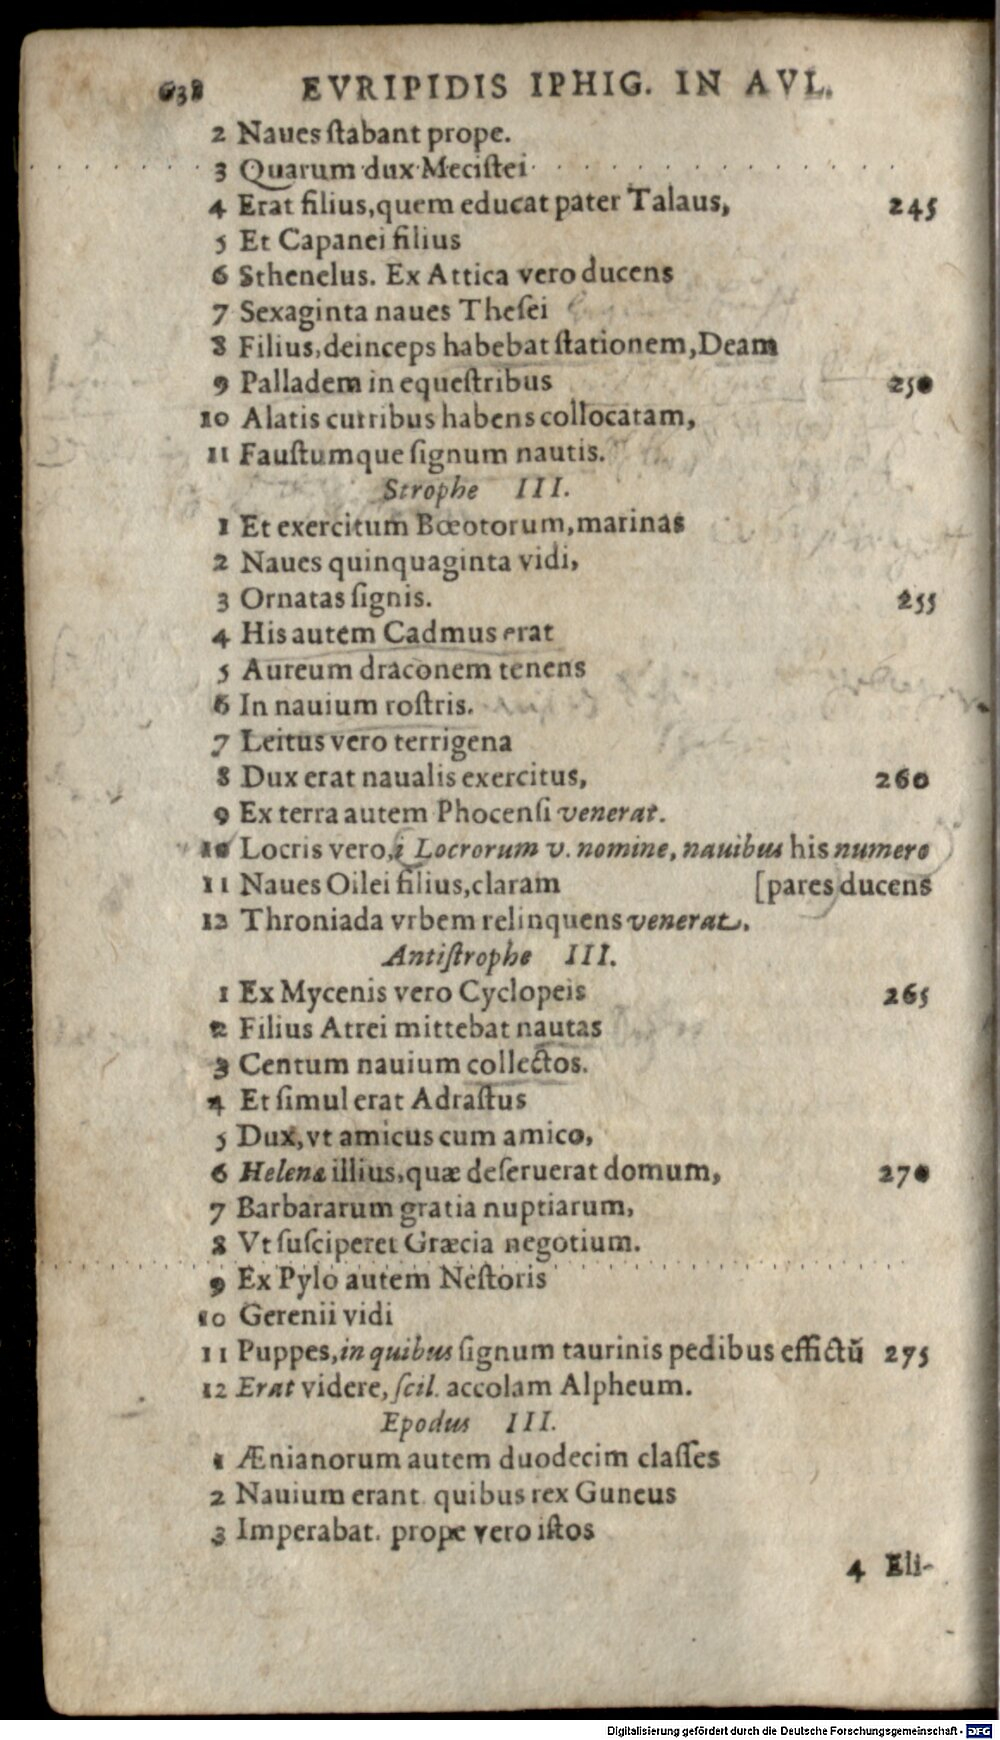 638 EVRIPIDIS IPHIG. IN AVL.
2 Naues ſtabant prope.
3 Quarum dux Meciſtei
4 Erat filius, quem educat pater Talaus, 245
5 Et Capanei filius
6 Sthenelus. Ex Attica vero ducens
7 Sexaginta naues Theſei
8 Filius, deinceps habebat ſtationem, Deam
9 Palladem in equeſtribus 250
10 Alatis curribus habens collocatam,
11 Fauſtumque ſignum nautis.
Strophe III.
1 Et exercitum Bœotorum, marinas
2 Naues quinquaginta vidi,
3 Ornatas ſignis. 255
4 His autem Cadmus erat
5 Aureum draconem tenens
6 In nauium roſtris.
7 Leitus vero terrigena
8 Dux erat naualis exercitus, 260
9 Ex terra autem Phocenſi venerat.
10 Locris vero, i Locrorum v. nomine, nauibus his numero
11 Naues Oilei filius, claram [pares ducens
12 Throniada vrbem relinquens venerat.
Antiſtrophe III.
1 Ex Mycenis vero Cyclopeis 265
2 Filius Atrei mittebat nautas
3 Centum nauium collectos.
4 Et ſimul erat Adraſtus
5 Dux, vt amicus cum amico,
6 Helenæ illius, quæ deſeruerat domum, 270
7 Barbararum gratia nuptiarum,
8 Vt ſuſciperet Græcia negotium.
9 Ex Pylo autem Neſtoris
10 Gerenii vidi
11 Puppes, in quibus ſignum taurinis pedibus effictū 275
12 Erat videre, ſcil. accolam Alpheum.
Epodus III.
1 Ænianorum autem duodecim claſſes
2 Nauium erant quibus rex Guneus
3 Imperabat. prope vero iſtos
4 Eli-
Digitalisierung gefördert durch die Deutsche Forschungsgemeinschaft - DFG